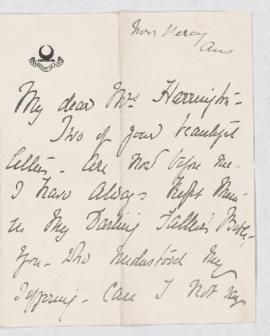 My dear Mrs Harrington -
Two of your beautiful
letters - are now before me -
I have always kept them
in my Darling Father's
You - who understood my
suffering - can I not say